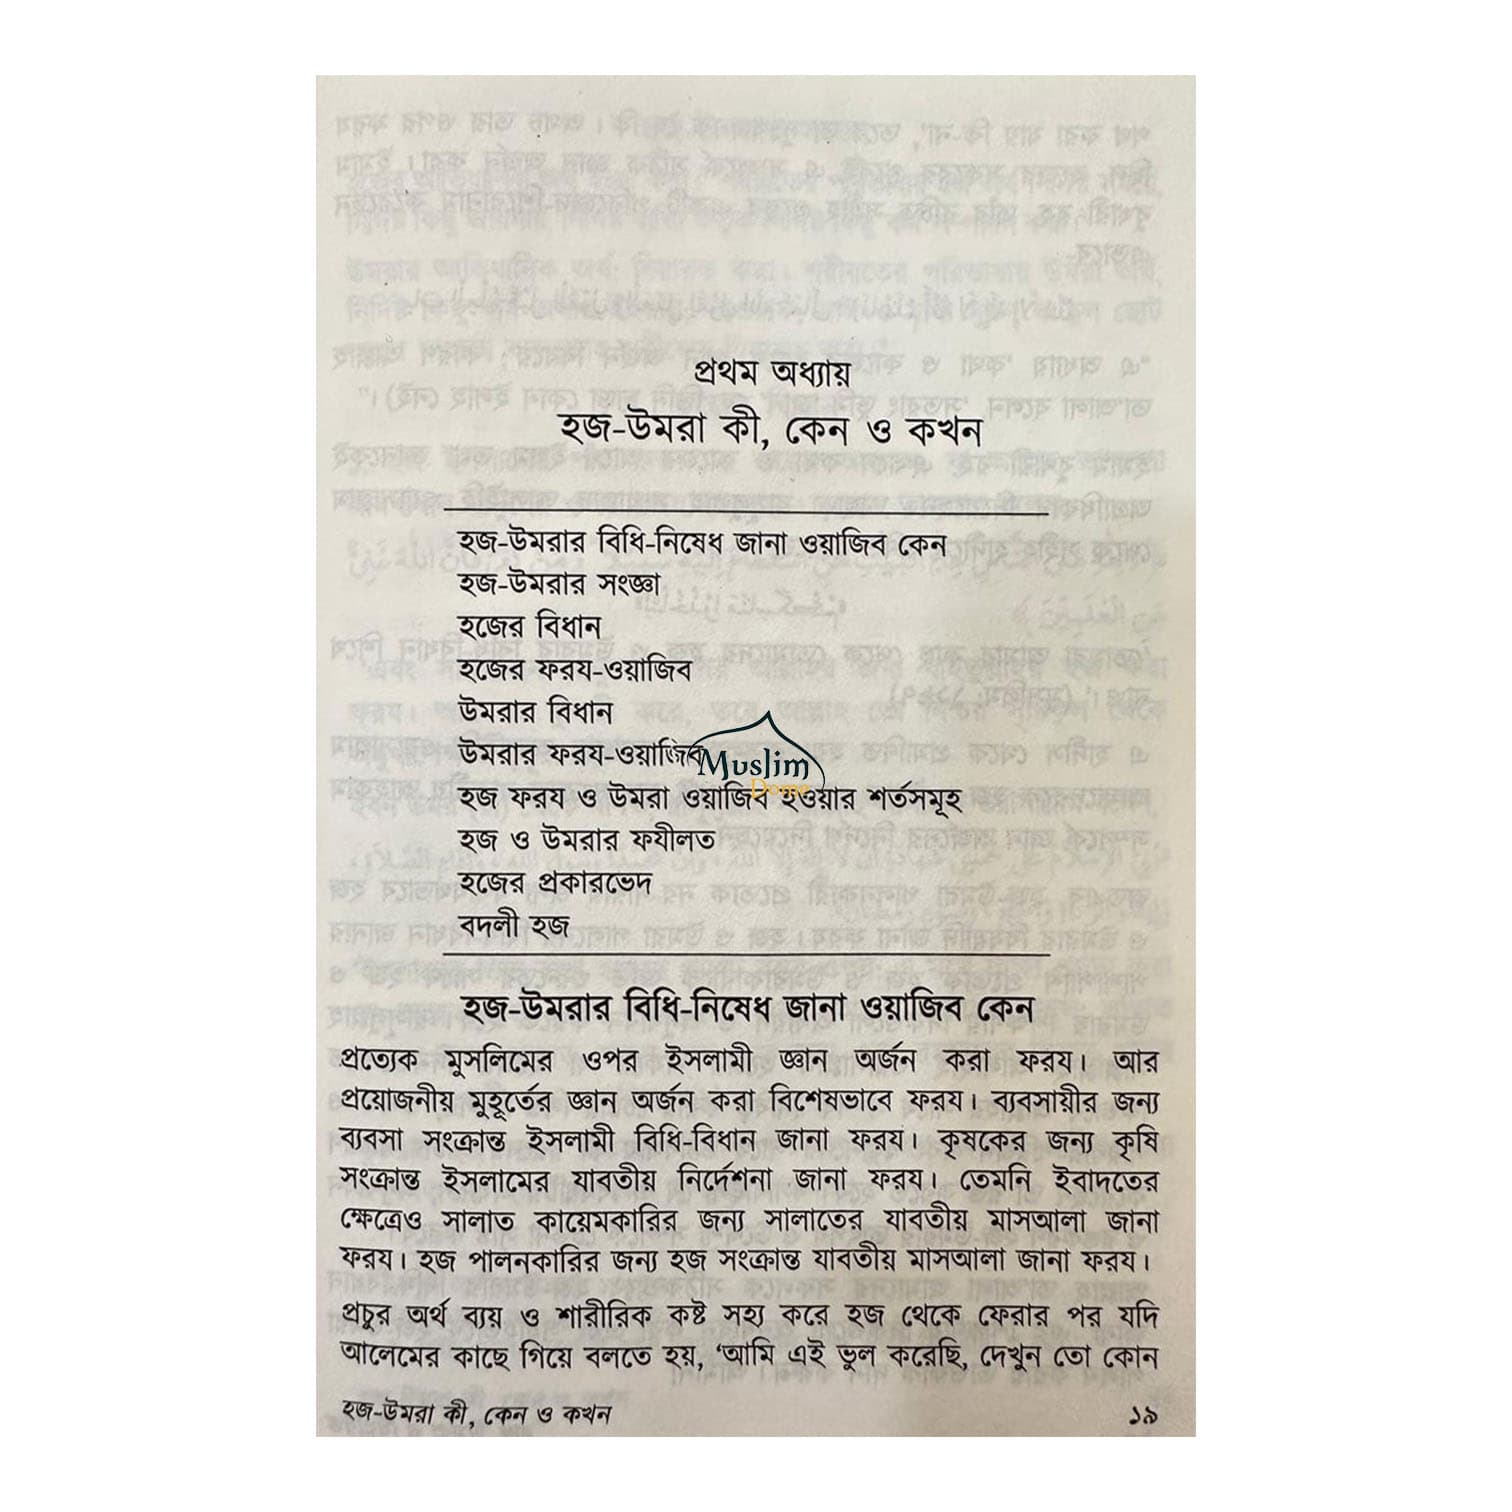 প্রথম অধ্যায়
হজ-উমরা কী, কেন ও কখন
হজ-উমরার বিধি-নিষেধ জানা ওয়াজিব কেন
হজ-উমরার সংজ্ঞা
হজের বিধান
হজের ফরয-ওয়াজিব
উমরার বিধান
উমরার ফরয-ওয়াজিব
Muslim
Dome
হজ ফরয ও উমরা ওয়াজিব হওয়ার শর্তসমূহ
হজ ও উমরার ফযীলত
হজের প্রকারভেদ
বদলী হজ
হজ-উমরার বিধি-নিষেধ জানা ওয়াজিব কেন
প্রত্যেক মুসলিমের ওপর ইসলামী জ্ঞান অর্জন করা ফরয। আর
প্রয়োজনীয় মুহূর্তের জ্ঞান অর্জন করা বিশেষভাবে ফরয। ব্যবসায়ীর জন্য
ব্যবসা সংক্রান্ত ইসলামী বিধি-বিধান জানা ফরয। কৃষকের জন্য কৃষি
সংক্রান্ত ইসলামের যাবতীয় নির্দেশনা জানা ফরয। তেমনি ইবাদতের
ক্ষেত্রেও সালাত কায়েমকারির জন্য সালাতের যাবতীয় মাসআলা জানা
ফরয। হজ পালনকারির জন্য হজ সংক্রান্ত যাবতীয় মাসআলা জানা ফরয।
প্রচুর অর্থ ব্যয় ও শারীরিক কষ্ট সহ্য করে হজ থেকে ফেরার পর যদি
আলেমের কাছে গিয়ে বলতে হয়, ‘আমি এই ভুল করেছি, দেখুন তো কোন
হজ-উমরা কী, কেন ও কখন ১৯